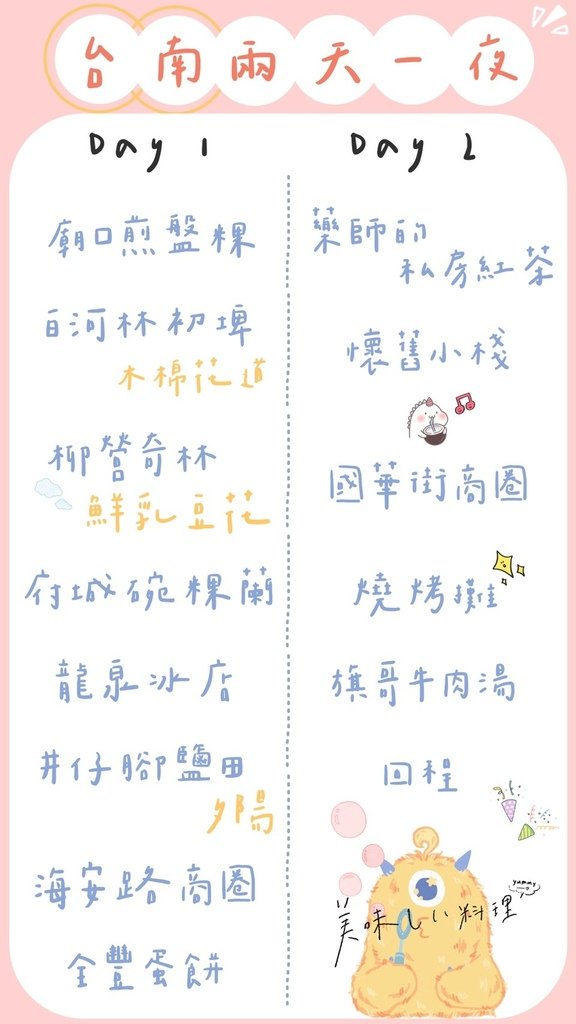 台南兩天一夜
Day 1
廟口煎盤粿
白河林初埤
木棉花道
柳營奇林
鮮乳豆花
府城碗粿蘭
龍泉冰店
井仔腳鹽田
夕陽
海安路商圈
全豐蛋餅
Day 2
藥師的
私房紅茶
懷舊小棧
國華街商圈
燒烤攤
旗哥牛肉湯
回程
yummy
美味しい料理